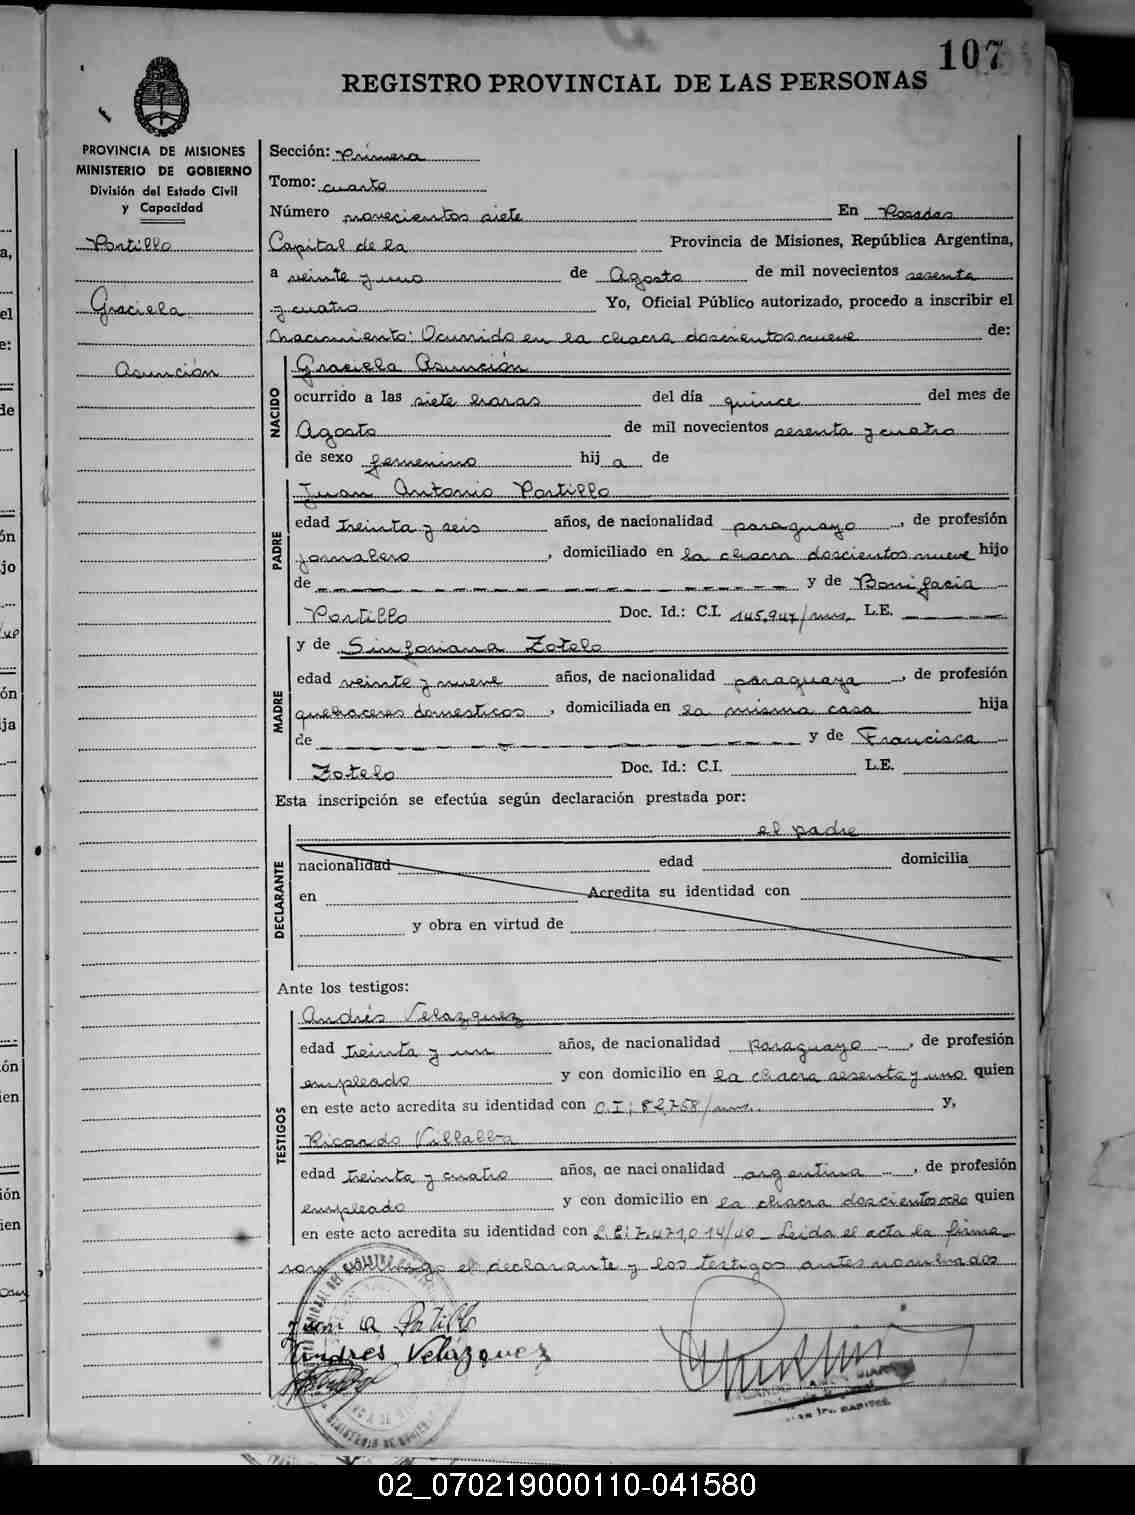 107
REGISTRO PROVINCIAL DE LAS PERSONAS
PROVINCIA DE MISIONES
MINISTERIO DE GOBIERNO
División del Estado Civil
y Capacidad
Portillo
Graciela
Asunción
Sección: Primera
Tomo: cuarto
Número novecientos siete En Posadas
Capital de la Provincia de Misiones, República Argentina,
a veinte y uno de Agosto de mil novecientos sesenta
y cuatro Yo, Oficial Público autorizado, procedo a inscribir el
nacimiento: Ocurrido en la chacra doscientos nueve de:
NACIDO
Graciela Asunción
ocurrido a las siete horas del día quince del mes de
Agosto de mil novecientos sesenta y cuatro
de sexo femenino hij a de
PADRE
Juan Antonio Portillo
edad treinta y seis años, de nacionalidad paraguayo, de profesión
jornalero, domiciliado en la chacra doscientos nueve hijo
de y de Bonifacia
Portillo Doc. Id.: C.I. 145.947/mis. L.E.
MADRE
y de Sinforiana Zotelo
edad veinte y nueve años, de nacionalidad paraguaya, de profesión
quehaceres domesticos, domiciliada en la misma casa hija
de y de Francisca
Zotelo Doc. Id.: C.I. L.E.
Esta inscripción se efectúa según declaración prestada por:
DECLARANTE
el padre
nacionalidad edad domicilia
en Acredita su identidad con
y obra en virtud de
Ante los testigos:
TESTIGOS
Andrés Velazquez
edad treinta y un años, de nacionalidad Paraguayo, de profesión
empleado y con domicilio en la chacra sesenta y uno quien
en este acto acredita su identidad con C.I: 82,758/mis. y,
Ricardo Villalba
edad treinta y cuatro años, de nacionalidad argentina, de profesión
empleado y con domicilio en la chacra doscientos ocho quien
en este acto acredita su identidad con L.E: 7.471,014/40 _ Leida el acta la firma
ron el declarante y los testigos antes nombrados
Juan A Portillo
Andrés Velázquez
02_070219000110-041580